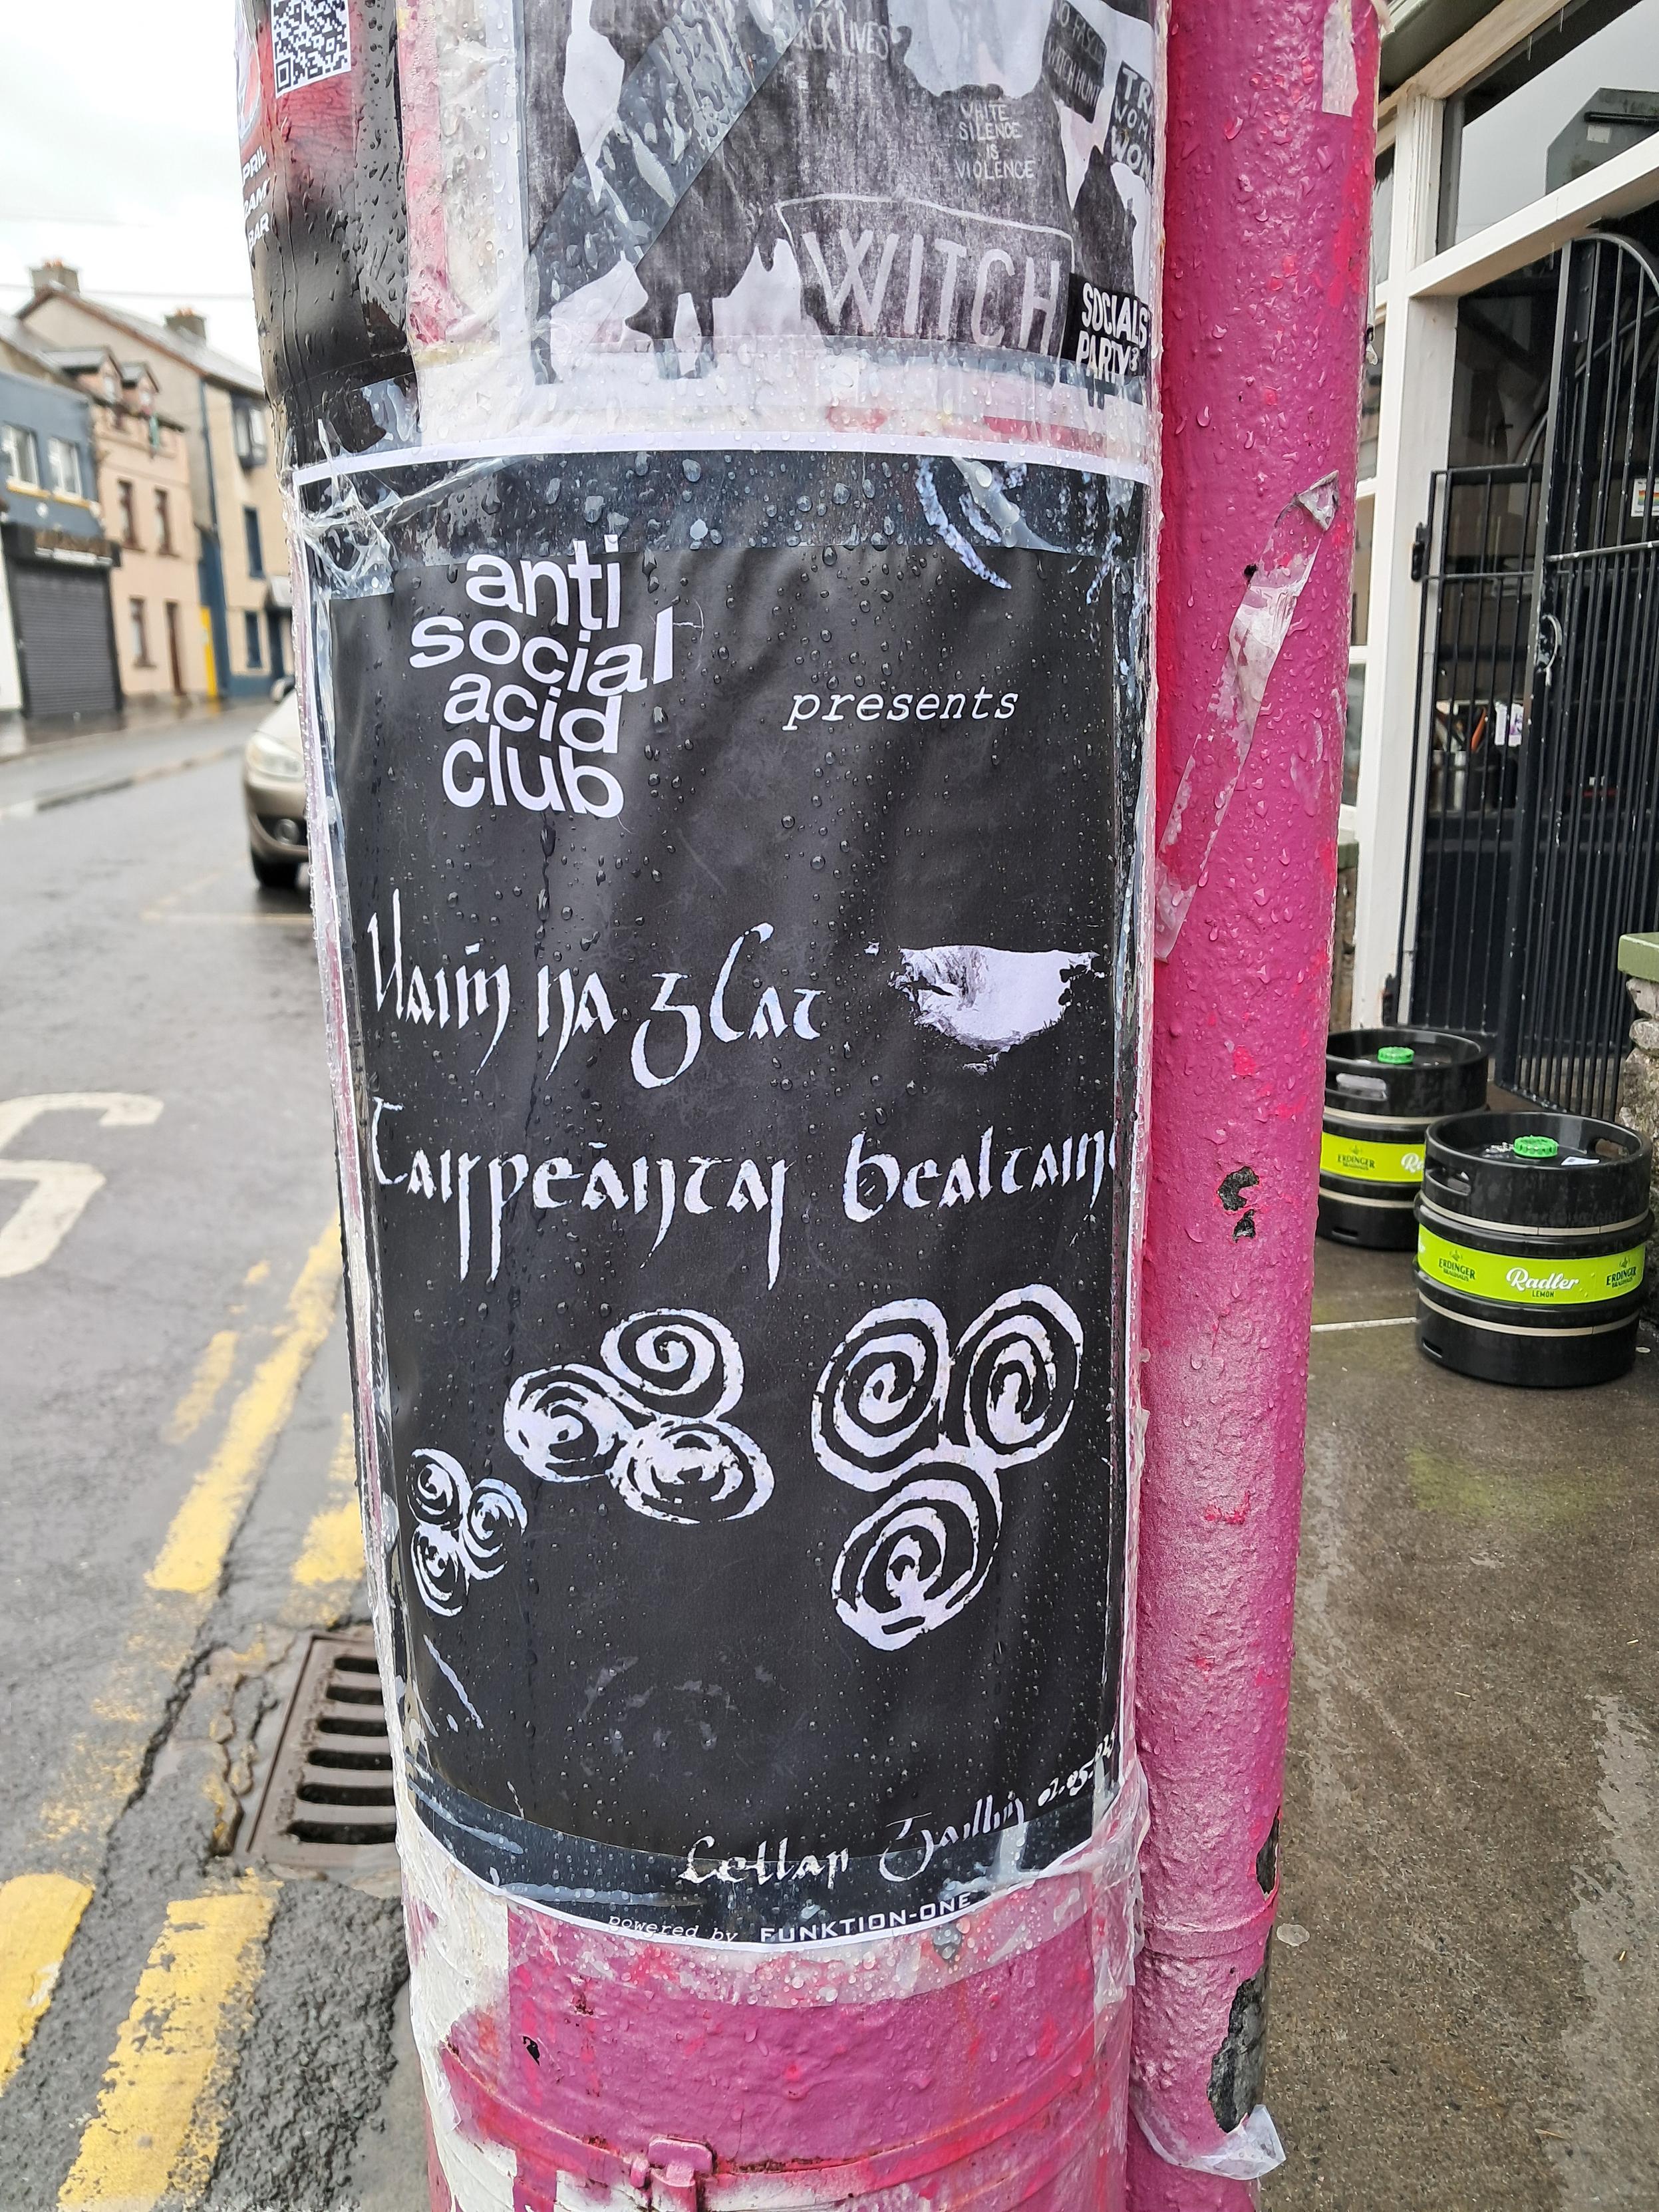 PRIL
BAR
ACK LIVES
WITCH HUNT
WHITE
SILENCE
IS
VIOLENCE
TR
WOM
WITCH
SOCIALIS
PARTY
anti
social
acid
club
presents
Uaiṁ na gCat
Taispeántas Bealtain
Cellar Gailliṁ
powered by FUNKTION-ONE
ERDINGER
ERDINGER
Radler
LEMON
ERDINGER